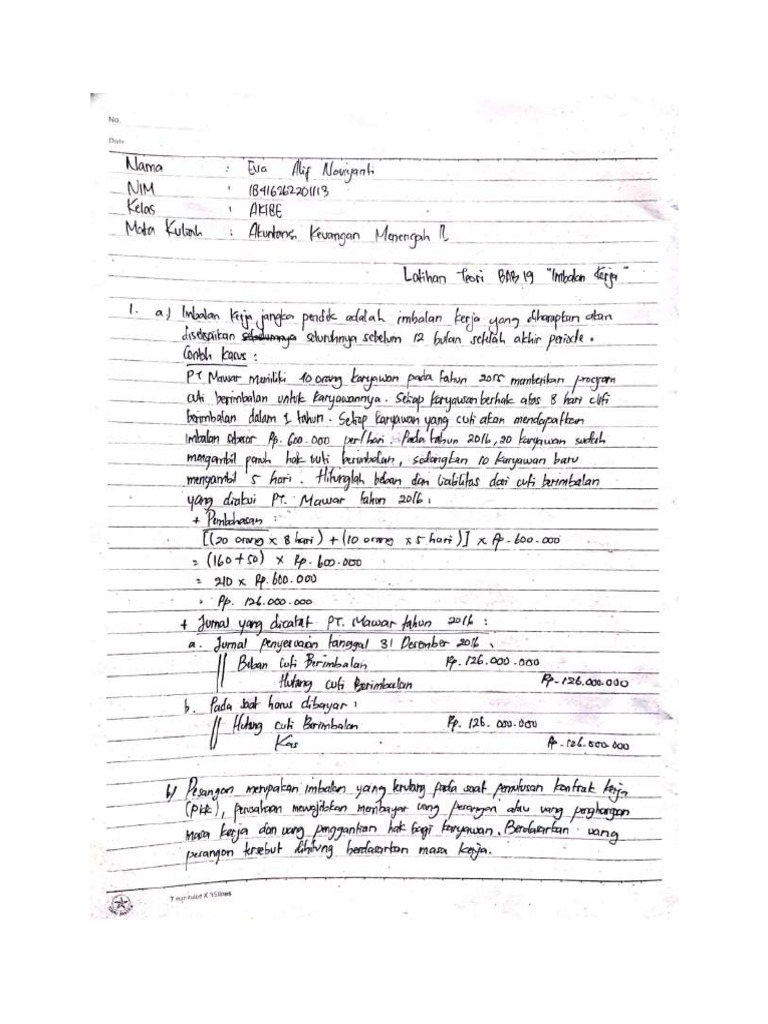 No.
Date
Nama : Eva Alif Noviyanti
NIM : 18416262201113
Kelas : AK18E
Mata Kuliah : Akuntansi Keuangan Menengah II
Latihan Teori BAB 19 "Imbalan Kerja"
1. a.) Imbalan kerja jangka pendek adalah imbalan kerja yang diharapkan akan
diselesaikan seluruhnya sebelum 12 bulan setelah akhir periode.
Contoh kasus :
PT Mawar memiliki 40 orang karyawan pada tahun 2015 memberikan program
cuti berimbalan untuk karyawannya. Setiap karyawan berhak atas 8 hari cuti
berimbalan dalam 1 tahun. Setiap karyawan yang cuti akan mendapatkan
imbalan sebesar Rp. 600.000 per/hari. Pada tahun 2016, 20 karyawan sudah
mengambil penuh hak cuti berimbalan, sedangkan 10 karyawan baru
mengambil 5 hari. Hitunglah beban dan liabilitas dari cuti berimbalan
yang diakui PT. Mawar tahun 2016 :
+ Pembahasan :
[(20 orang x 8 hari) + (10 orang x 5 hari)] x Rp. 600.000
= (160 + 50) x Rp. 600.000
= 210 x Rp. 600.000
= Rp. 126.000.000
+ Jurnal yang dicatat PT. Mawar tahun 2016 :
a. Jurnal penyesuaian tanggal 31 Desember 2016 :
Beban cuti Berimbalan Rp. 126.000.000
Hutang cuti Berimbalan Rp. 126.000.000
b. Pada saat harus dibayar :
Hutang cuti Berimbalan Rp. 126.000.000
Kas Rp. 126.000.000
b) Pesangon merupakan imbalan yang terutang pada saat pemutusan kontrak kerja
(PKK), perusahaan mewajibkan membayar uang pesangon atau uang penghargaan
masa kerja dan uang penggantian hak bagi karyawan. Berdasarkan uang
pesangon tersebut dihitung berdasarkan masa kerja.